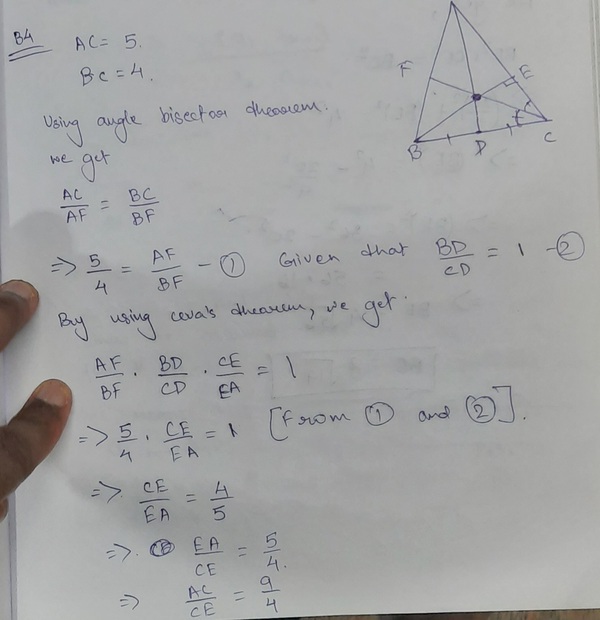 B4
AC = 5.
BC = 4.
Using angle bisector theorem.
we get
AC/AF = BC/BF
=> 5/4 = AF/BF - ① Given that BD/CD = 1 - ②
By using ceva's theorem, we get.
AF/BF . BD/CD . CE/EA = 1
=> 5/4 . CE/EA = 1 [from ① and ②].
=> CE/EA = 4/5
=> EA/CE = 5/4.
=> AC/CE = 9/4
F
E
B
D
C